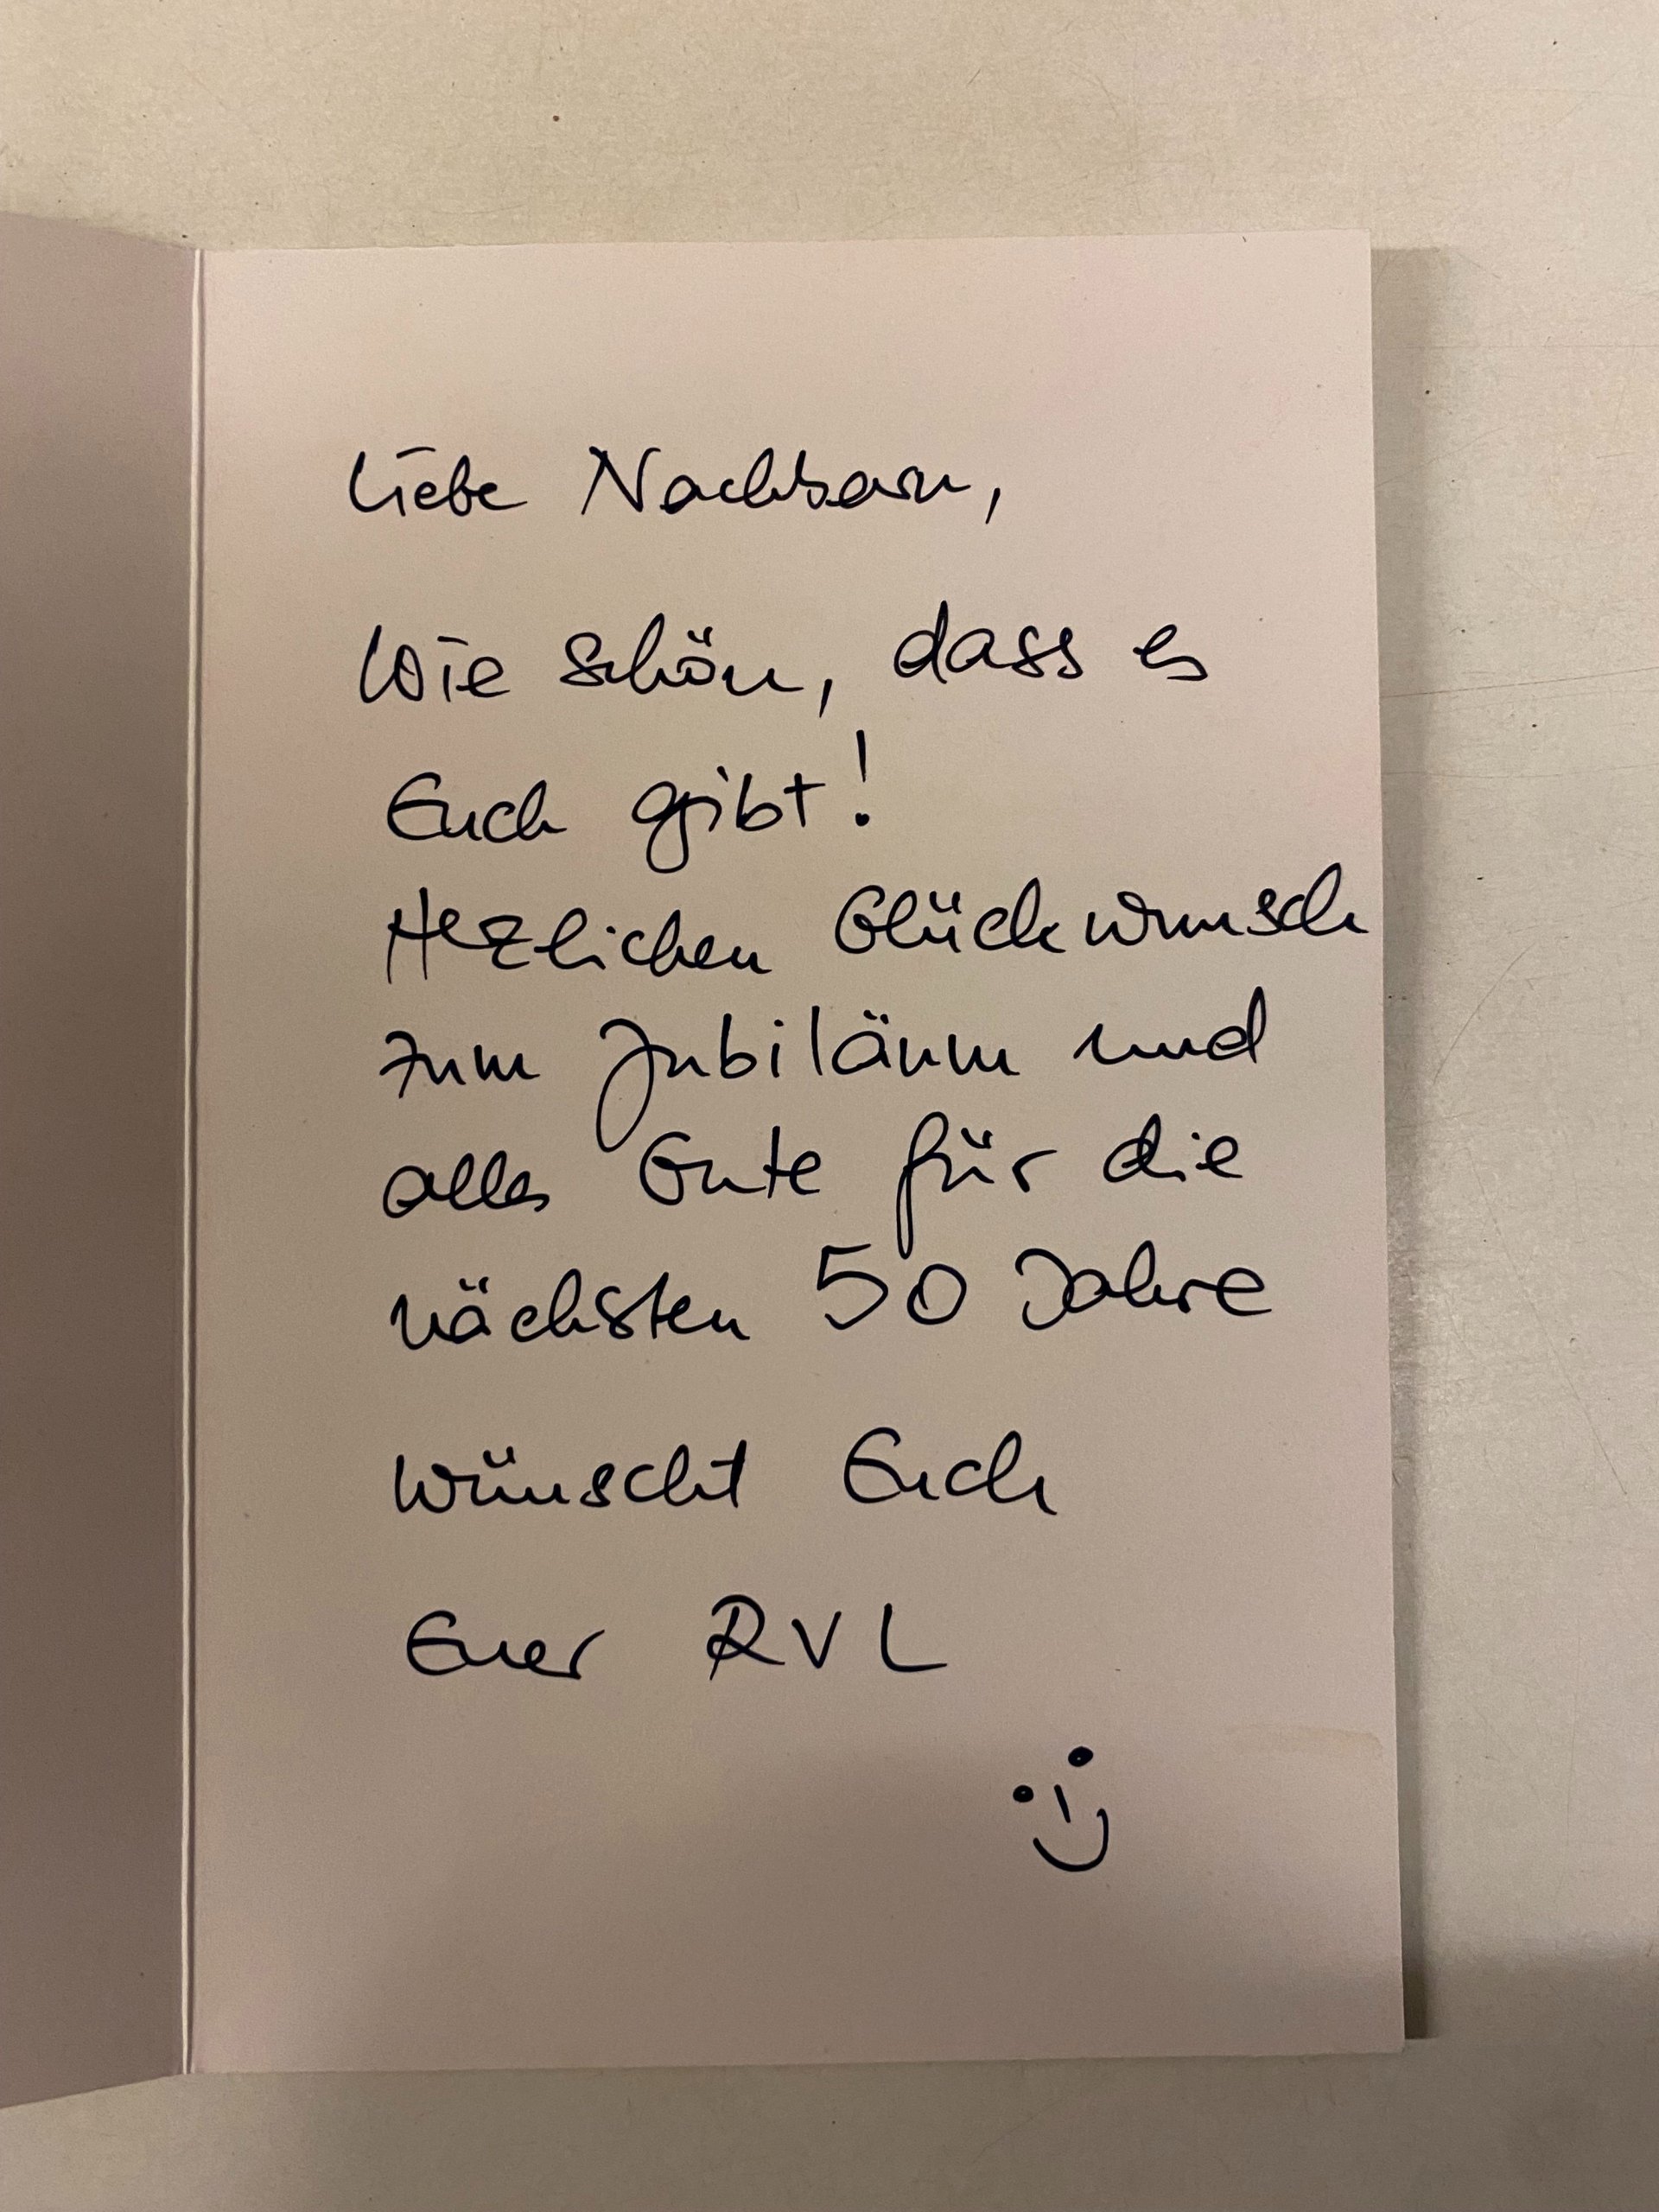 Liebe Nachbarn,
Wie schön, dass es
Euch gibt!
Herzlichen Glückwunsch
zum Jubiläum und
alles Gute für die
nächsten 50 Jahre
wünscht Euch
Euer RVL